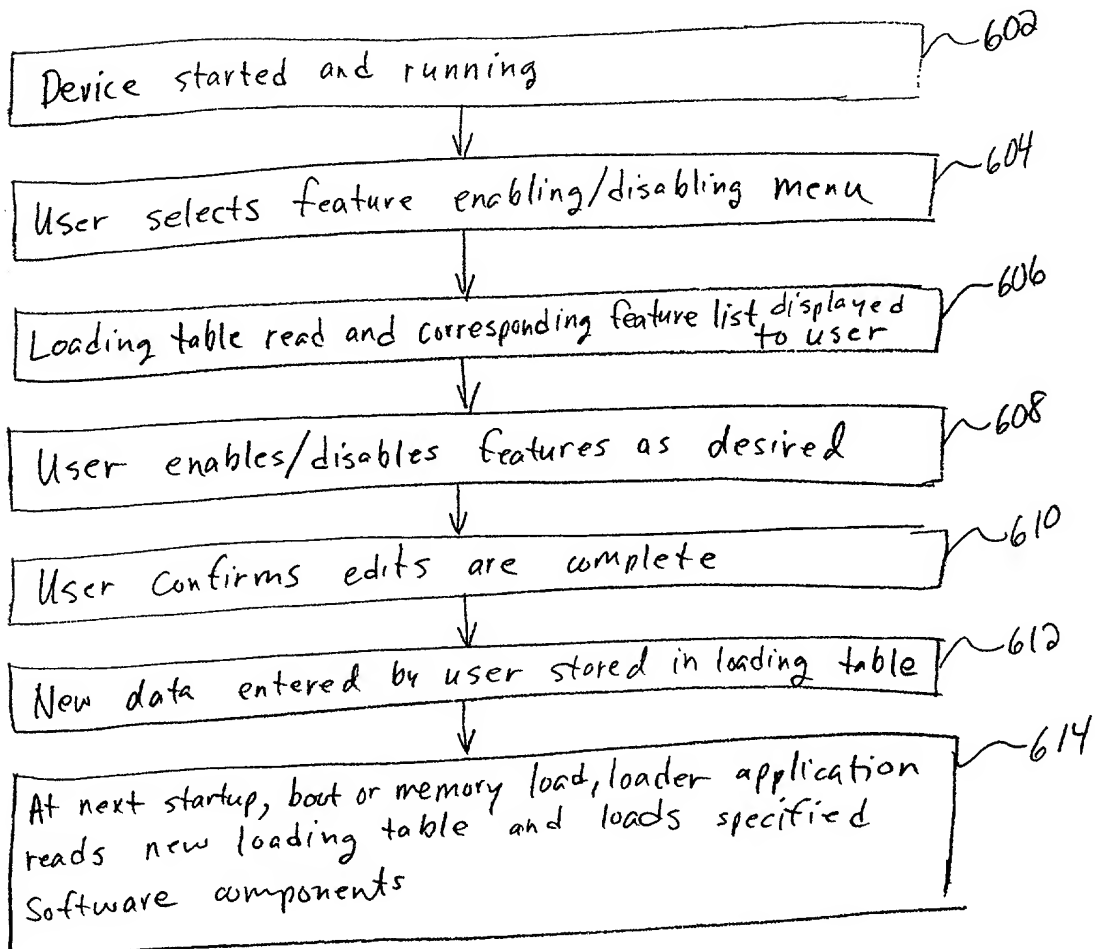 602
Device started and running
604
User selects feature enabling/disabling menu
606
Loading table read and corresponding feature list displayed
to user
608
User enables/disables features as desired
610
User confirms edits are complete
612
New data entered by user stored in loading table
614
At next startup, boot or memory load, loader application
reads new loading table and loads specified
Software components